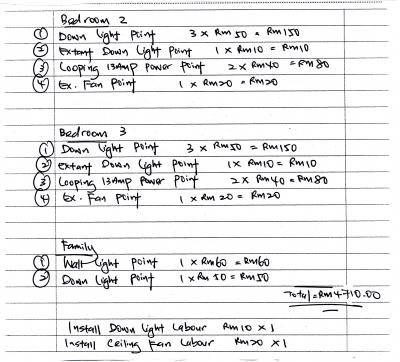 Bedroom 2
① Down light point 3 x RM50 = RM150
② Extant Down light point 1 x RM10 = RM10
③ Looping 13Amp Power point 2 x RM40 = RM80
④ Ex. Fan Point 1 x RM20 = RM20
Bedroom 3
① Down light Point 3 x RM50 = RM150
② Extant Down light Point 1x RM10 = RM10
③ Looping 13Amp Power point 2 x RM40 = RM80
④ Ex. Fan Point 1 x RM20 = RM20
Family
① Wall light point 1 x RM60 = RM60
② Down light Point 1 x RM50 = RM50
Total = RM4710.00
Install Down light Labour RM10 x 1
Install Ceiling Fan Labour RM20 x 1